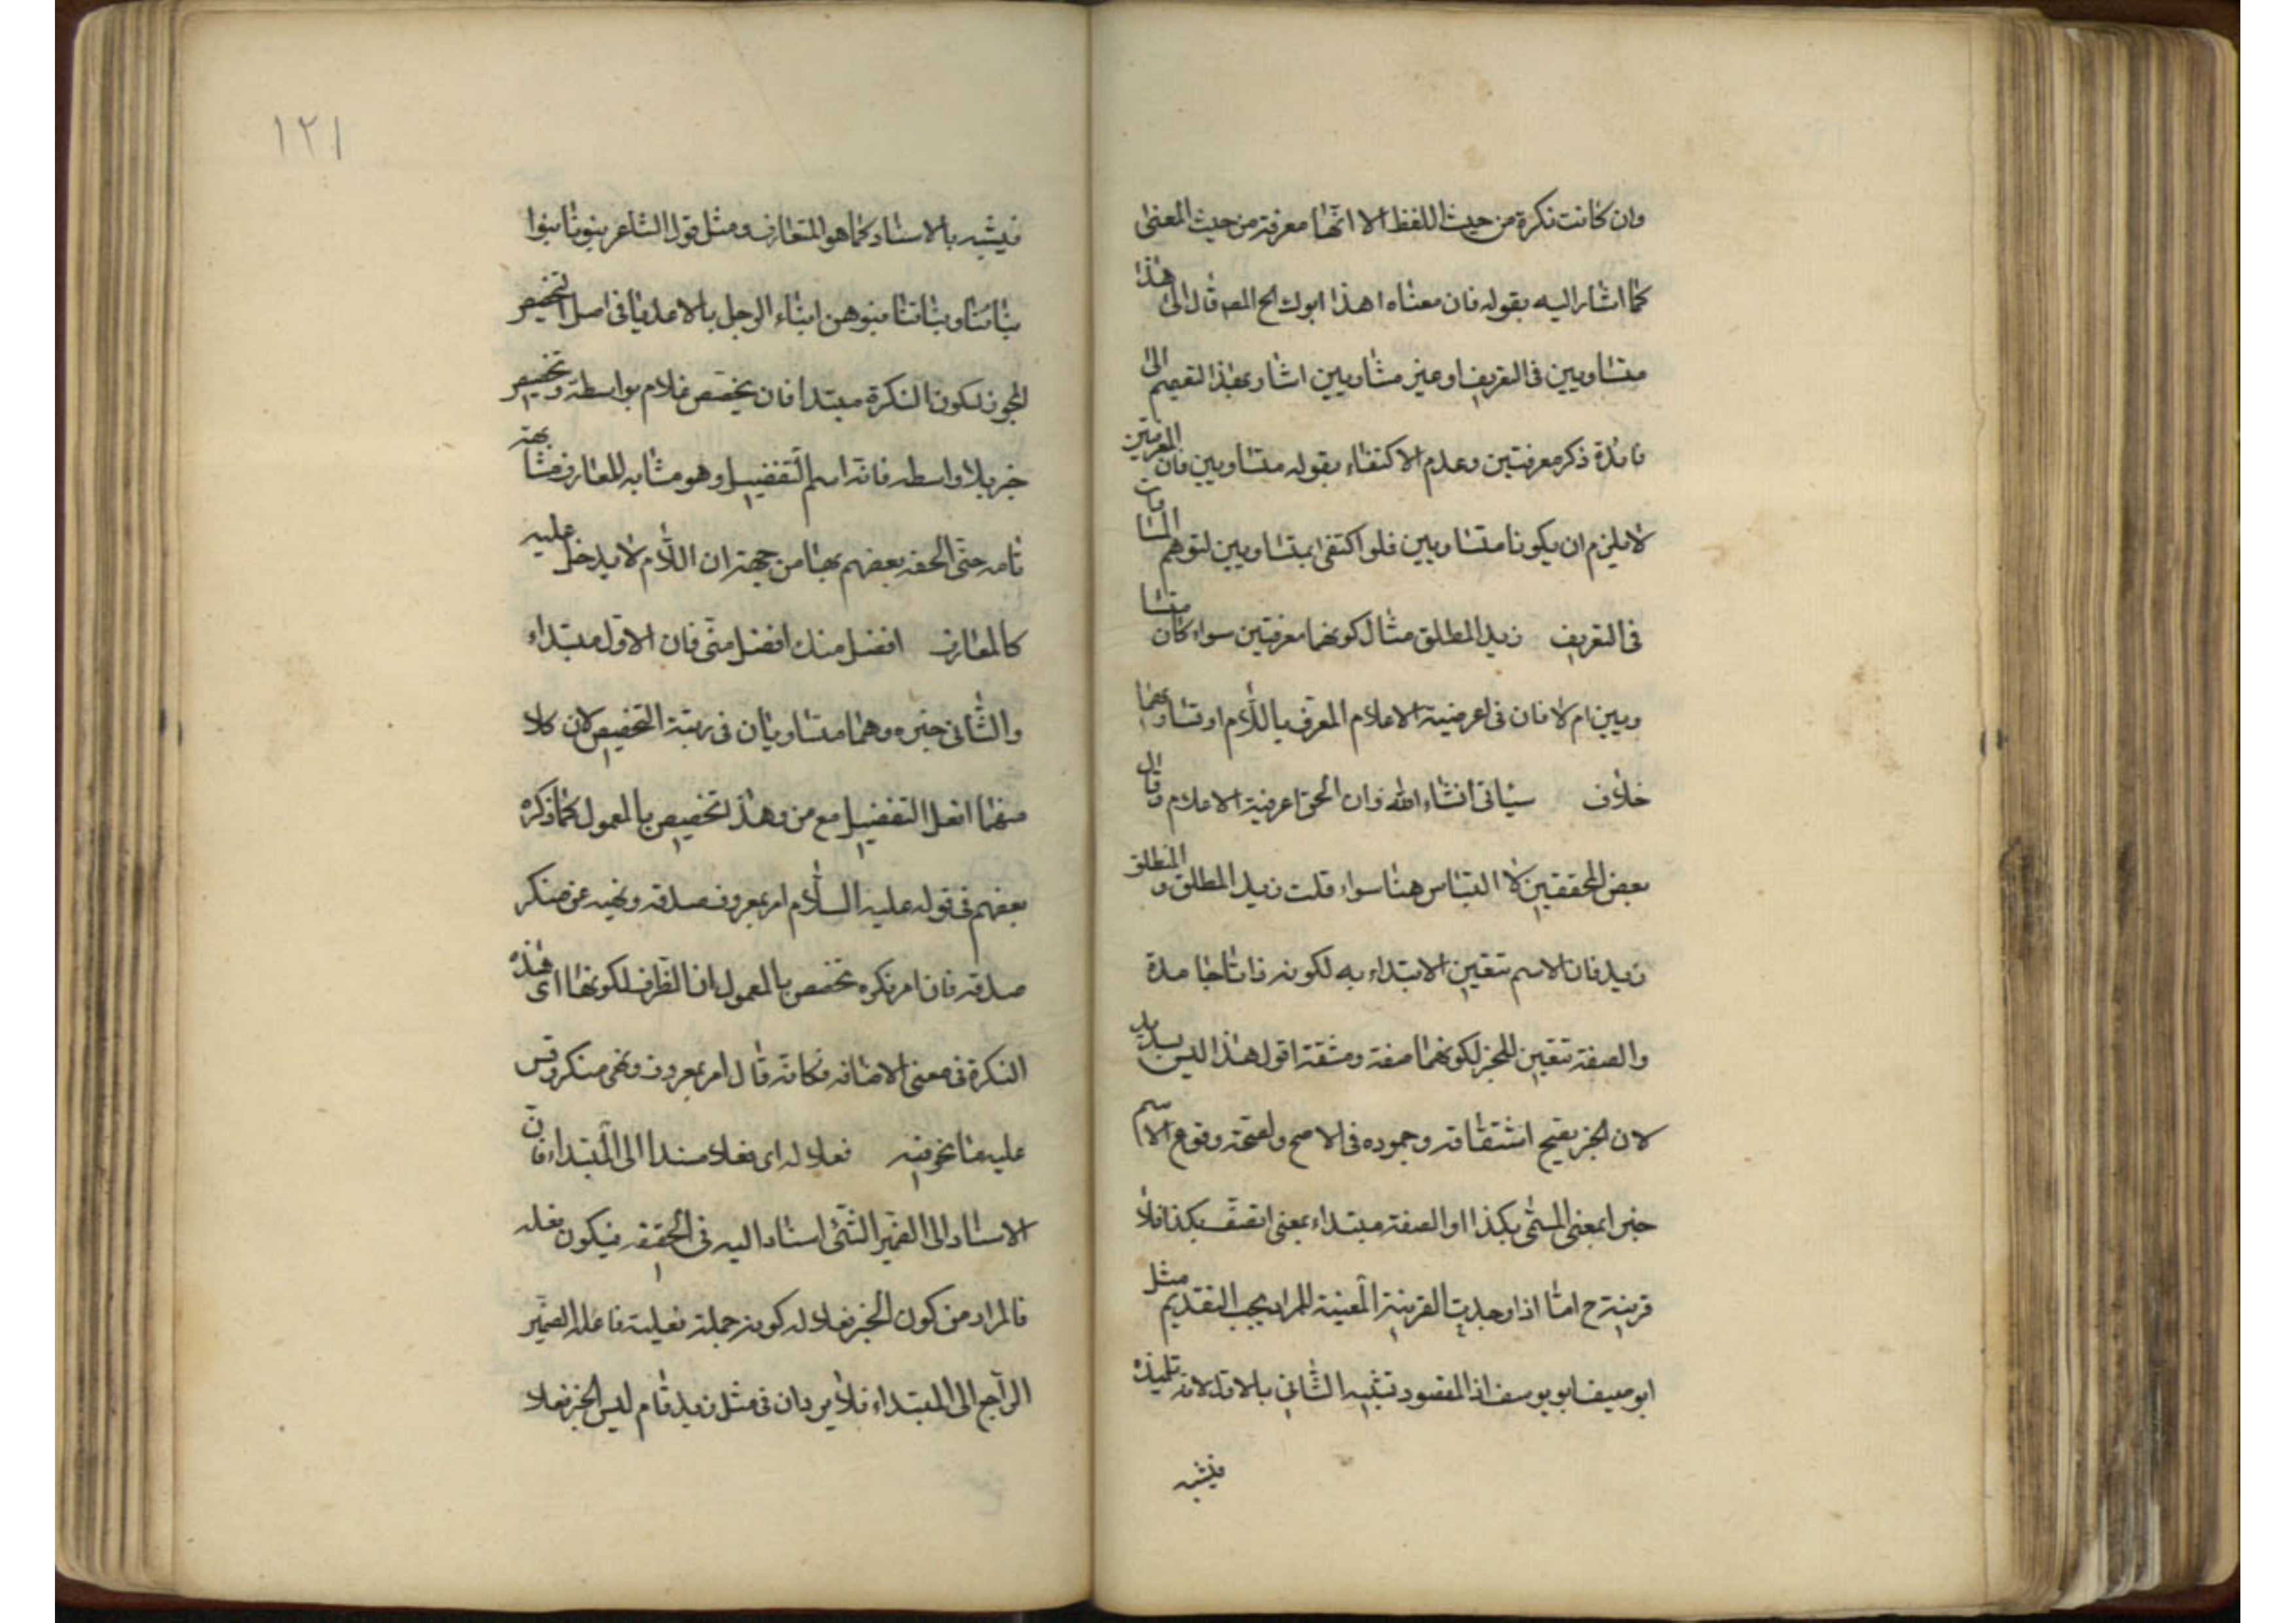 وان كانت نكرة من حيث اللفظ الا انها معرفة من حيث المعنى
كما اشار اليه بقوله فان معناه اهذا ابوك الح المص قال الى هذا
متساويين فى التعريف او غير متساويين اشار بهذا التعميم الى
فائدة ذكر معرفتين وعدم الاكتفاء بقوله متساويين فان المعرفتين
لا يلزم ان يكونا متساويين فلو اكتفى بمتساويين لتوهم المساوات
فى التعريف زيد المطلق مثال كونهما معرفتين سواء كان متسا
ويين ام لا فان فى اعرفية الاعلام المعرف باللام او تساويهما
خلاف سياتى انشاء الله وان الحق اعرفية الاعلام وقال
بعض المحققين لا التباس هنا سواء قلت زيد المطلق و المنطلق
زيد فان الاسم تتعين الابتداء به لكونه ذاتا جامدة
والصفة تتعين للخبر لكونهما صفة ومشقة اقول هذا ليس بسديد
لان الخبر يقبح اشتقاقه وجموده فى الاصح ولصحة وقوع الاسم
خبرا بمعنى المسمى بكذا او الصفة مبتداء بمعنى اتصف بكذا فلا
قرينة ح اما اذا وجدت القرينة المعينة للمراد يجب التقديم مثل
ابو ابو يوسف اذ المقصود تشبيه الثانى بالاول لانه تلميذه
فيشبه
١٢١
فيشبه بالاستاد كما هو المتعارف ومثل قول الشاعر بنونا بنوا
بناتنا وبناتنا بنوهن ابناء الرجل بالاملايا فى اصل التخصيص
المجوز لكون النكرة مبتدا فان يختص غلام بواسطة وتخصيص
خير بلا واسطه فانه اسم التفضيل وهو مشابه للمعارف مشابهة
تامه حتى الحقه بعضهم بها من جهة ان اللام لا يدخل عليه
كالمعارف افضل منك افضل منى فان الاول مبتداء
والثانى خبره وهما متساويان فى رتبة التخصيص لان كلا
منهما افعل التفضيل مع من وهذا تخصيص بالمعمول كما ذكره
بعضهم فى قوله عليه السلام امر بمعروف صدقه ونهيه عن منكر
صدقه فان امر نكره تخصص بالمعمول اذا الظرف لكونها اى هذه
النكرة فى معنى الاضافه فكانه قال امر بمعروف ونهى منكر وقس
عليه ما نحو فيه فعلا له اى فعلا مسندا الى المبتداء فان
الاسناد الى الضمير الشئ اسنادا اليه فى الحقيقه فيكون فعله
فالمراد من كون الخبر فعلا له كونه جملة فعلية فاعلها الضمير
الراجع الى المبتداء فلا يرد ان فى مثل زيد قام ليس الخبر فعلا